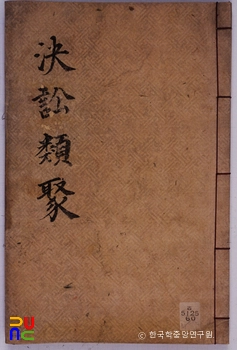 決訟類聚
5125
60
© 한국학중앙연구원